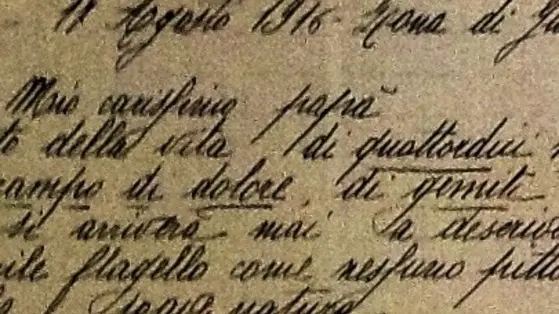 11 Agosto 1916 - Zona di
Mio carissimo papà
della vita di quattordici
campo di dolore, di gemiti
si arriverà mai a
flagello come nessuno
natura